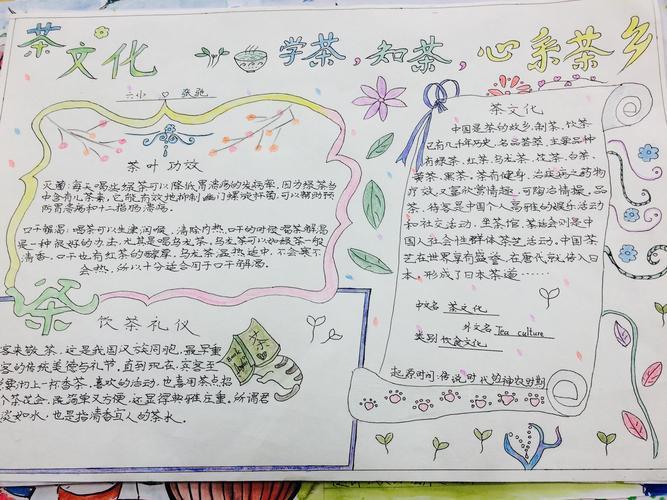 茶文化
学茶，知茶，心系茶乡
六小 张驰
茶叶 功效
灭菌：每天喝些绿茶可以降低胃溃疡的发病率，因为绿茶当
中含有儿茶素，它能有效地抑制幽门螺旋杆菌，可以帮助预
防胃溃疡和十二指肠溃疡。
口干解渴：喝茶可以生津润喉，清除内热，口干的时候喝茶解渴
是一种很好的办法，尤其是喝乌龙茶，乌龙茶可以如绿茶一般
清香，口干也有红茶的醇厚，乌龙茶温热适中，不会寒不
会热，所以十分适合用于口干解渴。
茶
饮茶礼仪
客来敬茶，这是我国汉族同胞，最早重
客的传统美德与礼节。直到现在，宾客至
沏上一杯香茶，喜欢的活动，也喜用茶点招
个茶花会，既简单又方便，还显得典雅庄重。所谓君
淡如水，也是指清香宜人的茶水
Book
茶
茶文化
中国是茶的故乡，制茶、饮茶
已有几千年历史，名品荟萃，主要品种
有绿茶、红茶、乌龙茶、饮茶、白茶、
黄茶、黑茶。茶有健身、治疾病之药物
疗效，又富欣赏情趣，可陶冶情操。品
茶、待客是中国个人高雅的娱乐活动
和社交活动，坐茶馆、茶话会则是中
国人社会性群体茶艺活动。中国茶
艺在世界享有盛誉，在唐代就传入日
本，形成了日本茶道……
中文名 茶文化
外文名 Tea culture
类别 饮食文化
起源时间：传说时代的神农时期